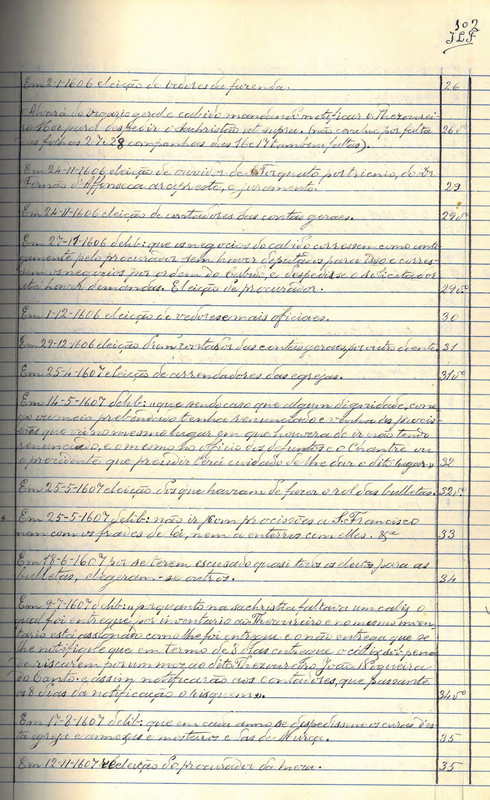 102
J.L.F.
Em 2-1-1606 eleição de vedores da fazenda. 26
Alvará do vigario geral e cabido mandando notificar o Thezourei-
ro Mor para despedir o Sachristão ut supra. (não concluo por falta 26vº
das folhas 27 e 28 companhas das 16 e 17 tambem faltas).
Em 24-11-1606 eleição de ouvidor de S. Torquato por triennio, do Dr
Fernão d'Affonseca arcipreste, e juramento. 29
Em 24-11-1606 eleição de contadores das contas geraes. 29vº
Em 27-11-1606 delib: que os negocios do cabido corressem como anti-
gamente pelo procurador sem haver deputados para isso e corres-
sem os negocios por ordem do Cabido, e despedisse o solicitador
até haver demandas. Eleição de procurador. 29vº
Em 1-12-1606 eleição de vedores e mais officiaes. 30
Em 29-12-1606 eleição d'um contador das contas geraes por outro doente. 31
Em 25-4-1607 eleição de arrendadores das egrejas. 31vº
Em 14-5-1607 delib: "que sendo caso que algum dignidade, cone-
go ou meio prebendado tenha renunciado e venha ás procis-
sões que vá no mesmo lugar em que houvera de ir não tendo
renunciado, e o mesmo no officio dos defuntos e o Chantre ou
o presidente que presidir terá cuidado de lhe dar o dito lugar." 32
Em 25-5-1607 eleição dos que haviam de fazer o rol das bulletas. 32vº
Em 25-5-1607 delib: não ir com procissões a S. Francisco
nem com os frades de lá, nem a enterros com elles. 33
Em 18-6-1607 por se terem escusado quasi todos os eleitos para as
bulletas, elegeram-se outros. 34
Em 9-7-1607 delib: "porquanto na sachristia faltava um caliz o
qual foi entregue por inventario ao Thezoureiro e no mesmo inven-
tario está assignado como lhe foi entregue e o não entrega que se
lhe notifique que em termo de 8 dias entregue o caliz sob pena
de riscarem por um mez ao dito Thezoureiro João Nogueira
do Canto. e assim notificarão aos contadores, que passante
os 8 dias da notificação o risquem". 34vº
Em 17-8-1607 delib: que em cada anno se despedissem os curas des-
ta egreja e annexas e mosteiros e das de Murça. 35
Em 12-11-1607 reeleição do procurador da meza. 35